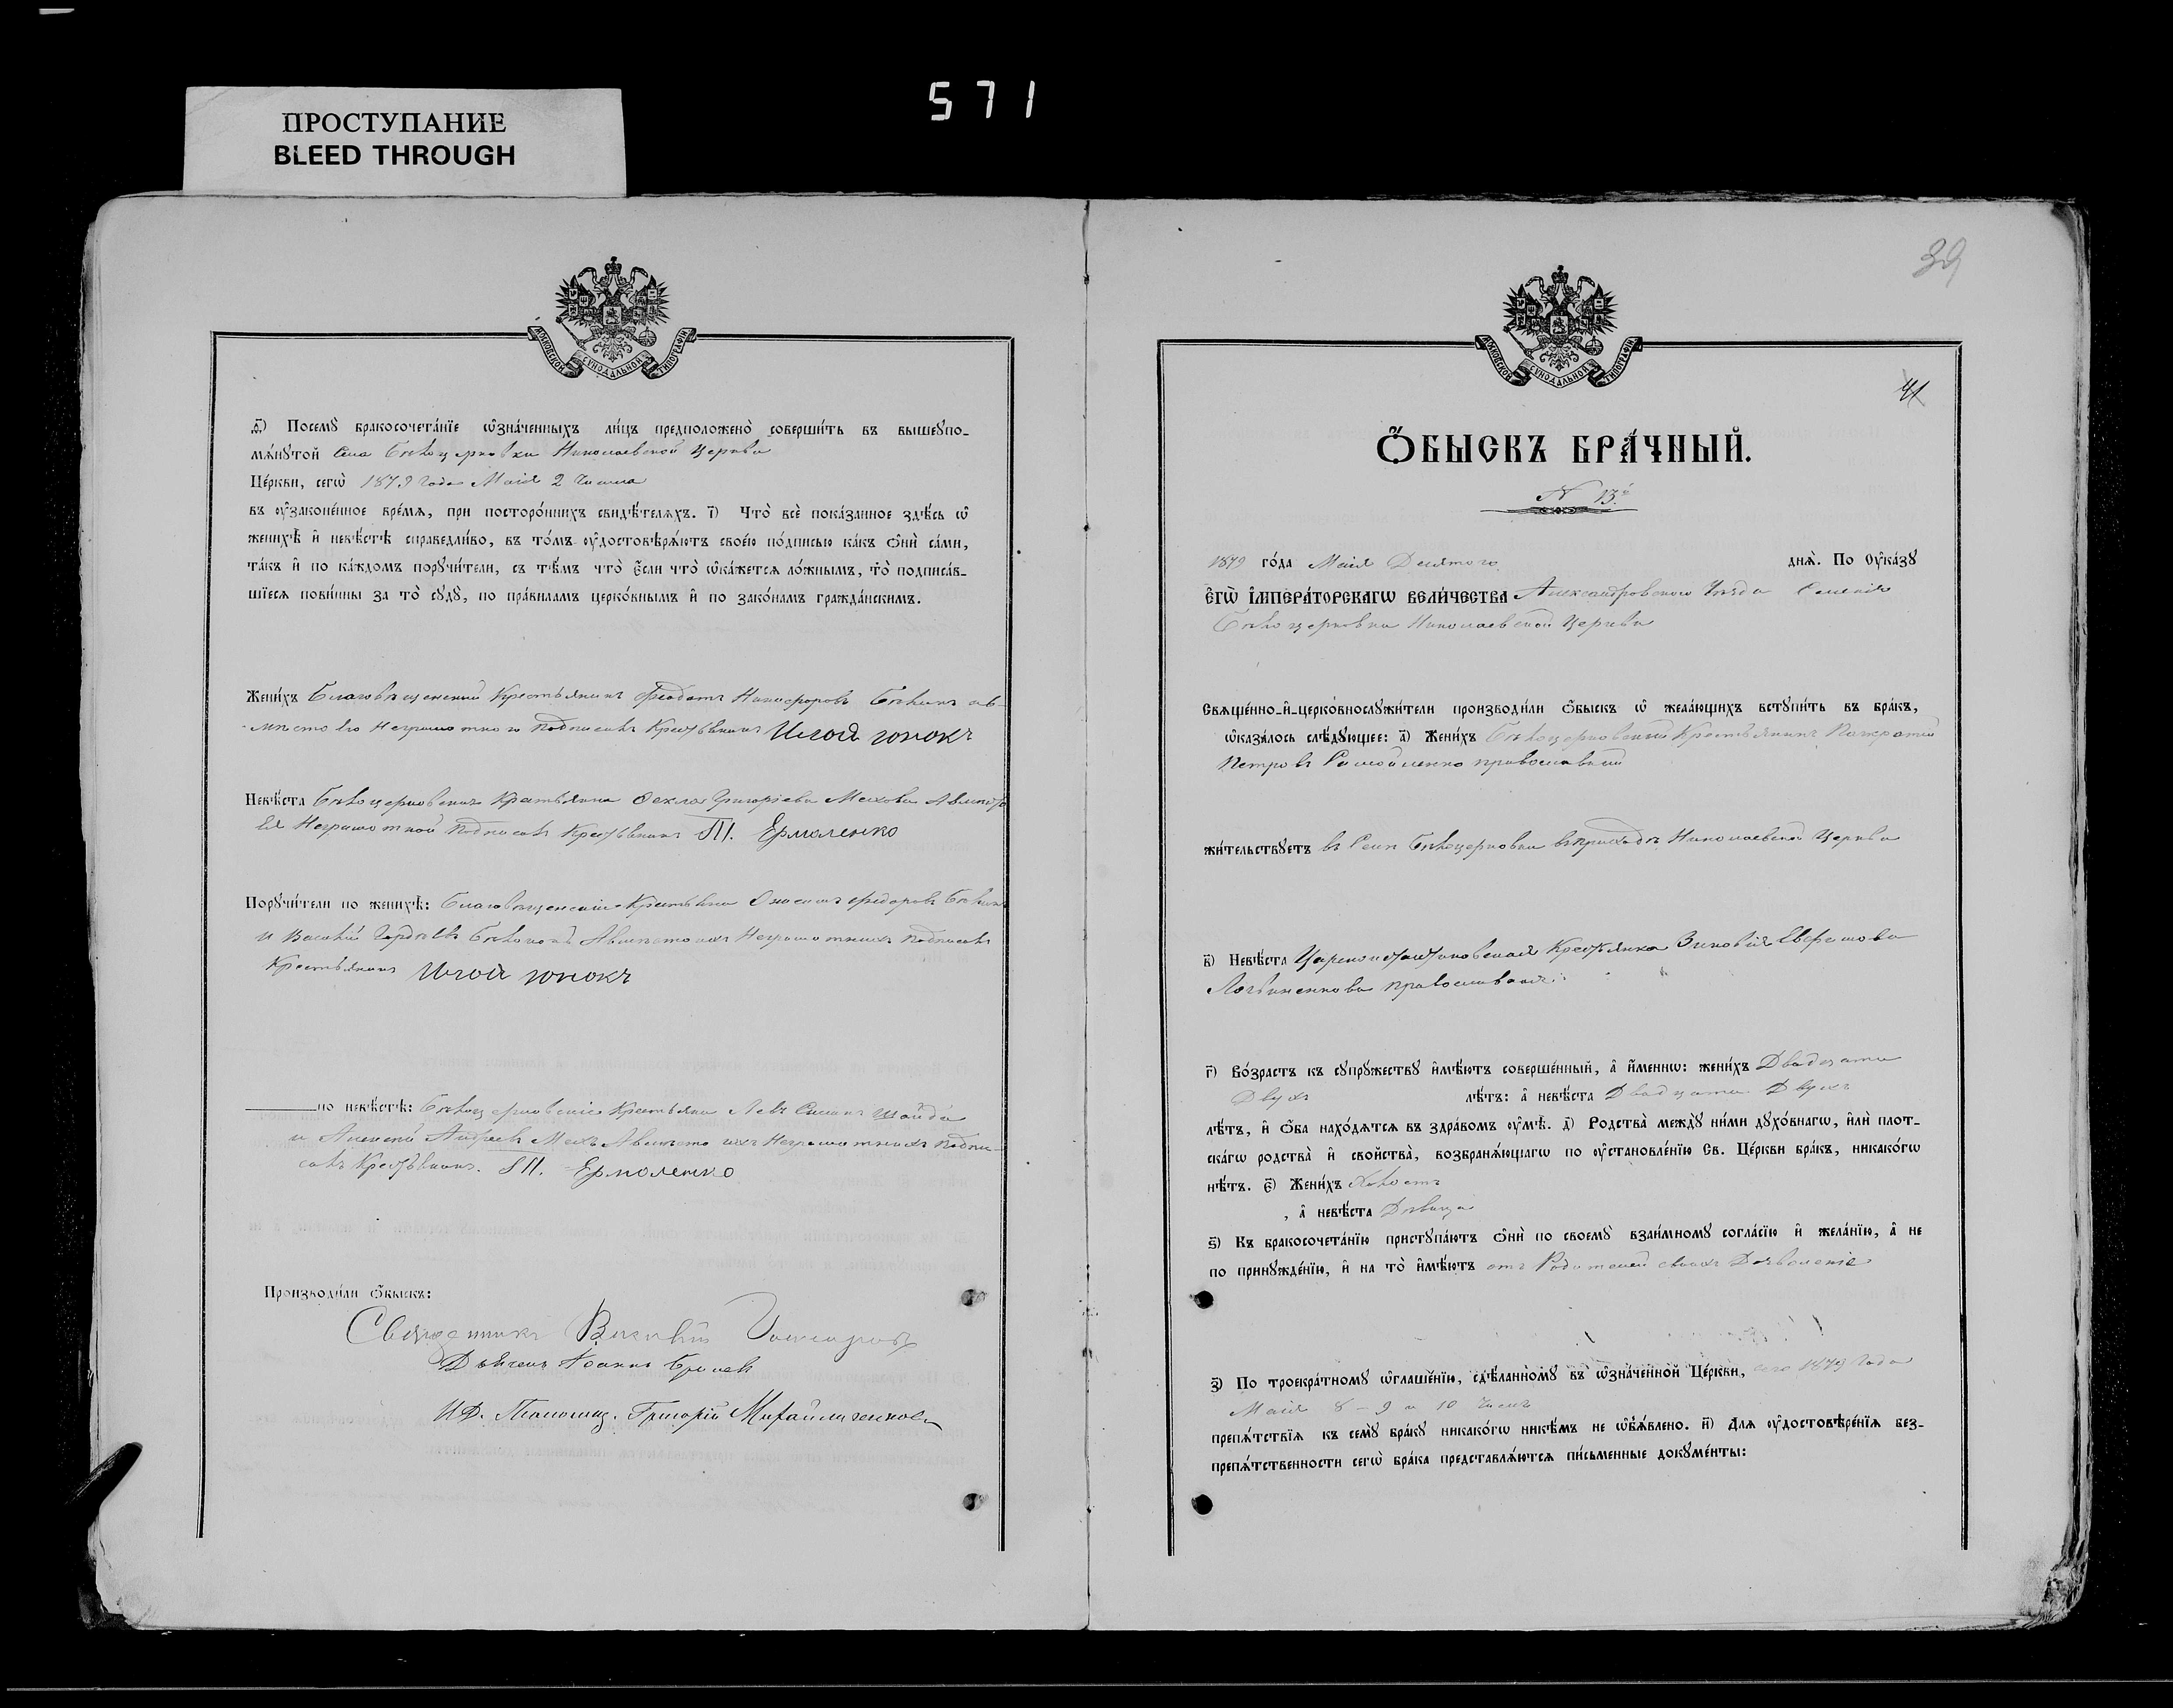 571
ПРОСТУПАНИЕ
BLEED THROUGH
МОСКОВСКОЙ СѴНОДАЛЬНОЙ ТИПОГРАФІИ
д҃) Посемꙋ̀ бракосочета́нїе ѡ҆зна́ченныхъ ли́цъ предположено̀ соверши́ть въ вышеꙋпо-
мѧ́нꙋтой Села Бѣлоцерковки Николаевской Церкви
Це́ркви, сегѡ̀ 1879 года Маія 2 числа
въ ᲂу҆зако́ненное вре́мѧ, при посторо́ннихъ свидѣ́телѧхъ. і҃) Что̀ всѐ пока́занное здѣ́сь ѡ҆
женихѣ̀ и҆ невѣ́стѣ справедли́во, въ то́мъ ᲂу҆достовѣрѧ́ютъ свое́ю по́дписью ка́къ ѻ҆нѝ са́ми,
та́къ и҆ по ка́ждомъ порꙋчи́тели, съ тѣ́мъ что̀ є҆́сли что̀ ѡ҆ка́жетсѧ ло́жнымъ, то̀ подписа́в-
шїесѧ пови́нны за то̀ сꙋдꙋ̀, по пра́виламъ церко́внымъ и҆ по зако́намъ гражда́нскимъ.
Жени́хъ Благовѣщенский Крестьянинъ Феодотъ Никифоровъ Бѣликъ а в-
мѣсто его Неграмотного подписалъ Крестьянинъ
Невѣ́ста Бѣлоцерковская Крестьянка Ѳекла Григорiева Мехова А вмѣсто
Ея Неграмотной подписалъ Крестьянинъ П. Ермоленко
Порꙋчи́тели по женихѣ̀: Благовѣщенские Крестьяне Федоровъ Бѣликъ
и Василiй А вмѣсто ихъ Неграмотныхъ подписалъ
Крестьянинъ
по невѣ́стѣ: Бѣлоцерковские Крестьяне Левъ Шайда
и Алексѣй Андреевъ Мехъ А вмѣсто ихъ Неграмотныхъ подпи-
салъ Крестьянинъ. П. Ермоленко
Производи́ли ѻ҆́быскъ:
Священникъ Василій
Дьячекъ Іоаннъ
И.Д. Псаломщ. Григорій
39
41
МОСКОВСКОЙ СѴНОДАЛЬНОЙ ТИПОГРАФІИ
Ѻ҆́БЫСКЪ БРА́ЧНЫЙ.
N 13й
1879 го́да Маія Десятого днѧ̀. По Оу҆ка́зꙋ
Є҆гѡ̀ І҆мпера́торскагѡ Вели́чества Александровского Уѣзда Селенія
Бѣлоцерковки Николаевской Церкви
Свѧще́нно-и҆-церко́внослꙋжи́тели производи́ли ѻ҆́быскъ ѡ҆ жела́ющихъ встꙋпи́ть въ бра́къ,
ѡ҆каза́лось слѣ́дꙋющее: а҃) Жени́хъ Бѣлоцерковский Крестьянинъ Панкратий
Петровъ Самойленко православный
жи́тельствꙋетъ въ Селѣ Бѣлоцерковки въ приходѣ Николаевской Церкви
в҃) Невѣ́ста Цареконстантиновская Крестьянка Зиновія Евфимова
Логвиненкова православная
г҃) Во́зрастъ къ сꙋпрꙋ́жествꙋ и҆мѣ́ютъ соверше́нный, а҆ и҆́меннѡ: жени́хъ Двадцати
Двухъ лѣ́тъ: а҆ невѣ́ста Двадцати Двухъ
лѣ́тъ, и҆ ѻ҆́ба нахо́дѧтсѧ въ здра́вомъ ᲂу҆мѣ̀. д҃) Родства̀ междꙋ̀ ни́ми дꙋхо́внагѡ, и҆лѝ плот-
ска́гѡ родства̀ и҆ сво́йства̀, возбранѧ́ющагѡ по ᲂу҆становле́нїю Св. Це́ркви бра́къ, никако́гѡ
нѣ́тъ. є҃) Жени́хъ Холостъ
, а҆ невѣ́ста Дѣвица
ѕ҃) Къ бракосочета́нїю пристꙋпа́ютъ ѻ҆нѝ по своемꙋ̀ взаи́мномꙋ согла́сїю и҆ жела́нїю, а҆ не
по принꙋжде́нїю, и҆ на то̀ и҆мѣ́ютъ отъ Родителей своихъ Дозволеніе
з҃) По троекра́тномꙋ ѡ҆глаше́нїю, сдѣ́ланномꙋ въ ѡ҆зна́ченной Це́ркви, сего 1879 года
Маія 8 - 9 и 10 Чиселъ
препѧ́тствїѧ къ семꙋ̀ бра́кꙋ никако́гѡ никѣ́мъ не ѡ҆б̾ѧ́влено. и҃) Длѧ ᲂу҆достовѣре́нїѧ без-
препѧ́тственности сегѡ̀ бра́ка представлѧ́ютсѧ пи́сьменные докꙋме́нты: